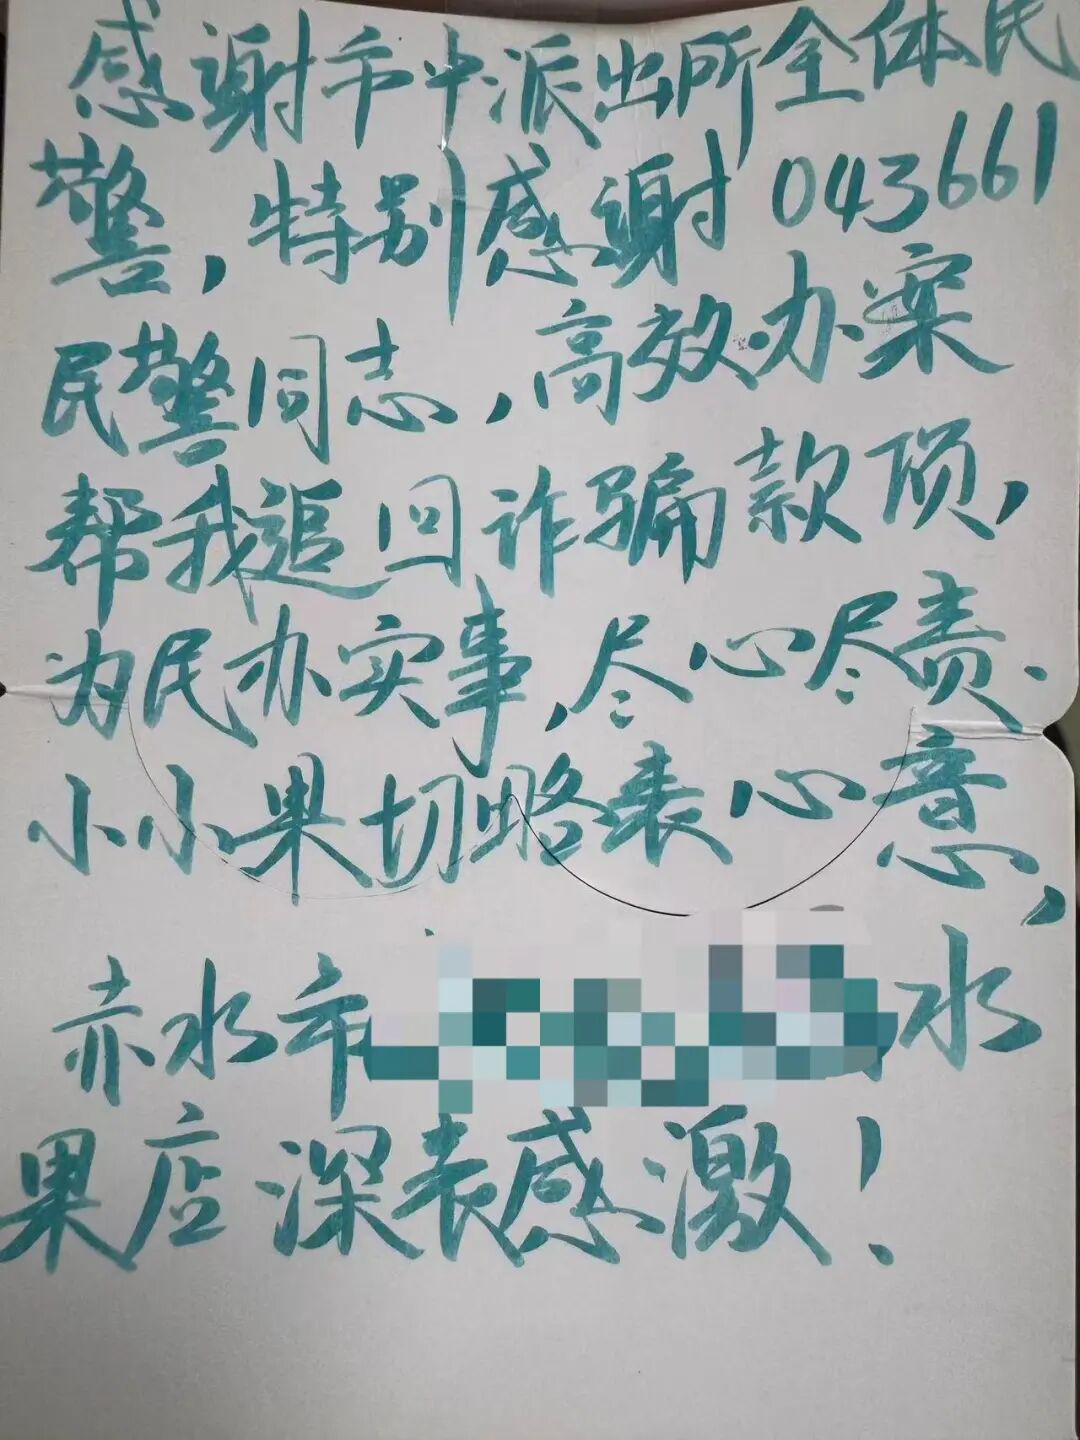 感谢市中派出所全体民
警，特别感谢043661
民警同志，高效办案
帮我追回诈骗款项，
为民办实事，尽心尽责.
小小果切略表心意，
赤水市
水
果店深表感激！